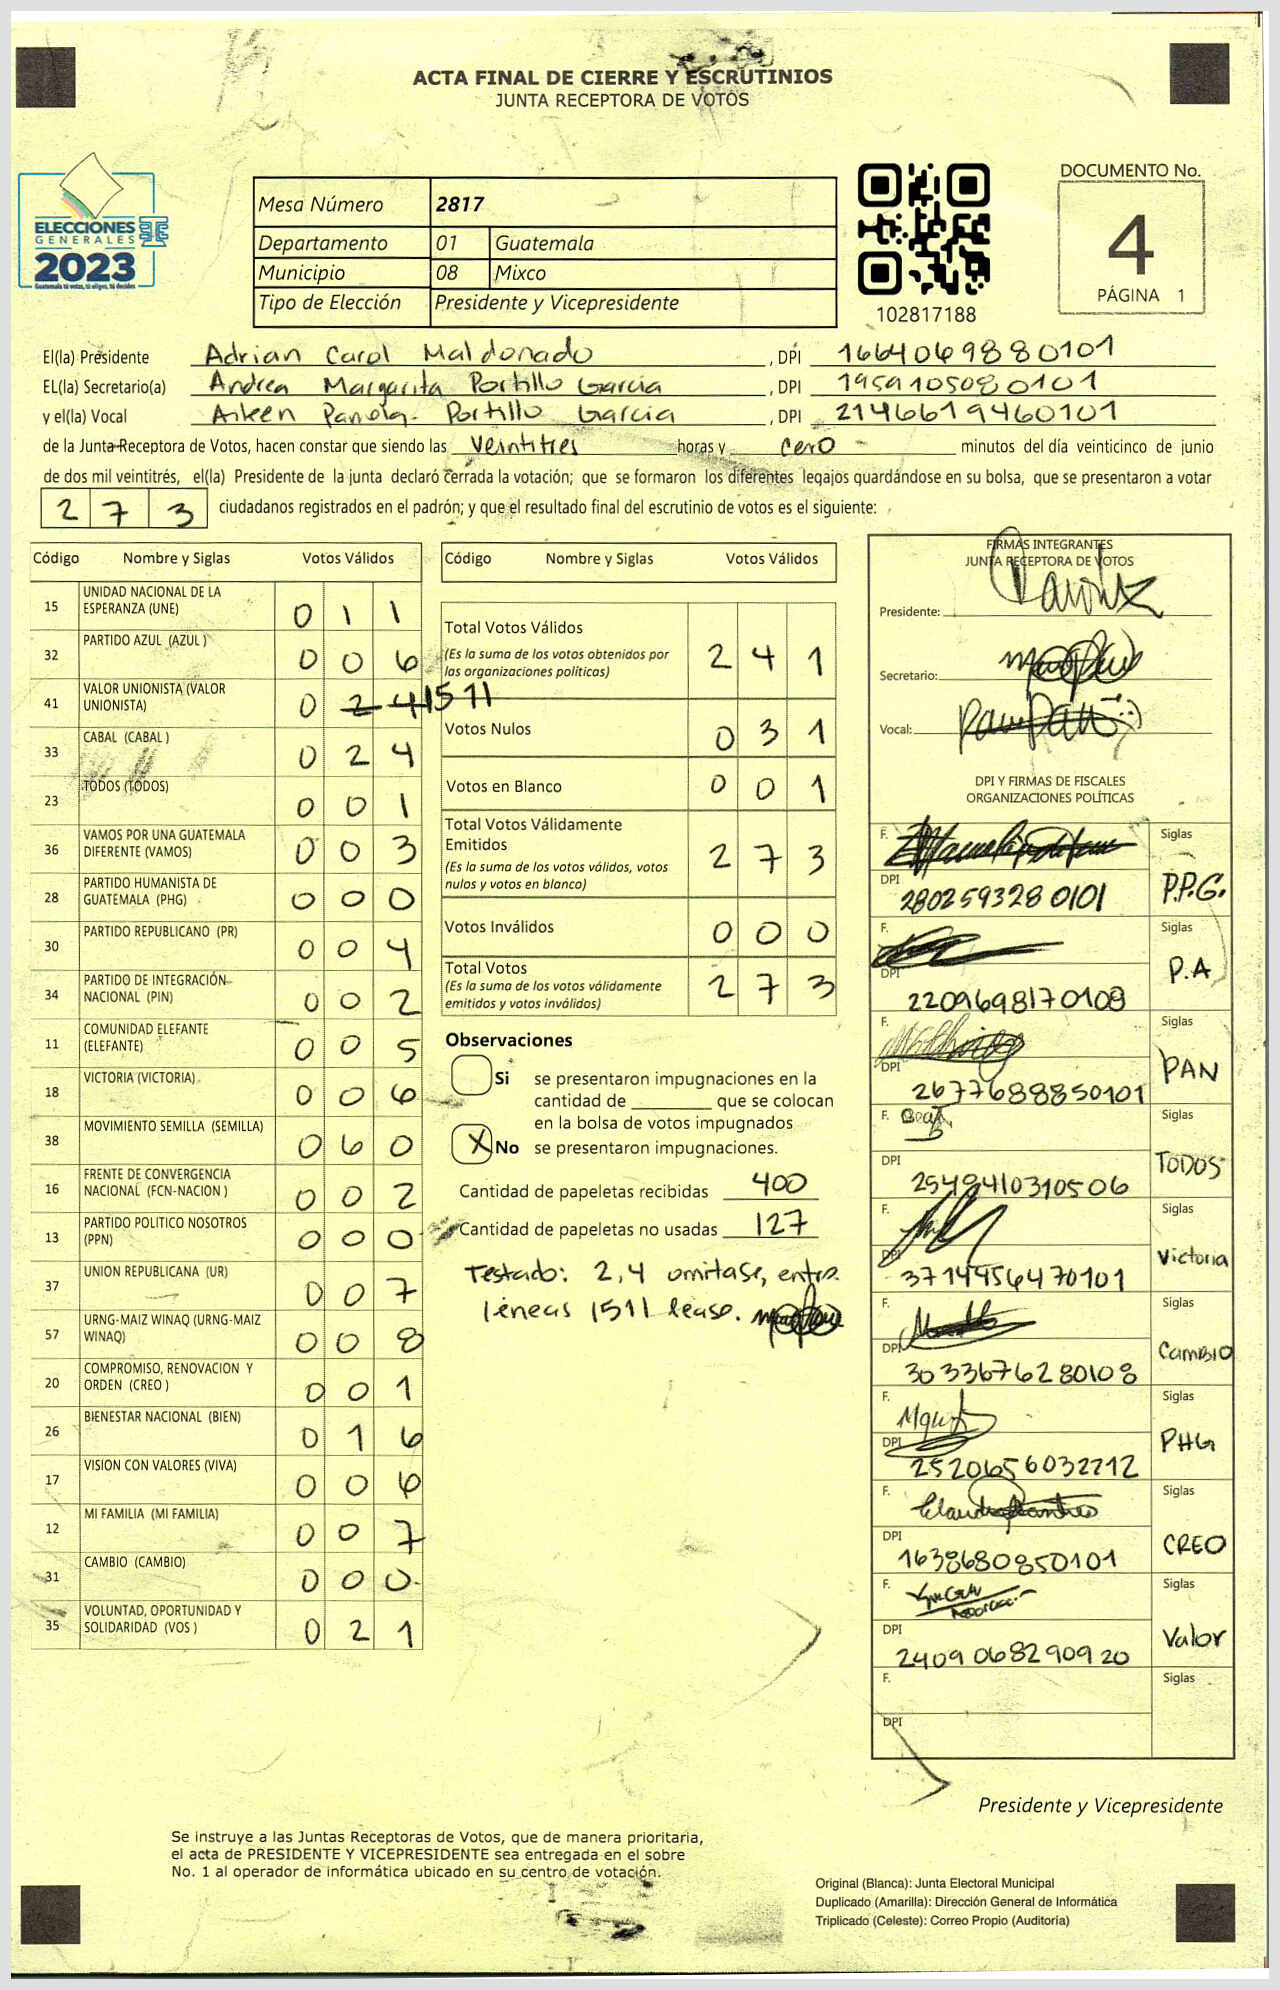 ACTA FINAL DE CIERRE Y ESCRUTINIOS
JUNTA RECEPTORA DE VOTOS
ELECCIONES
GENERALES
2023
Guatemala tú votas, tú eliges, tú decides
Mesa Número 2817
Departamento 01 Guatemala
Municipio 08 Mixco
Tipo de Elección Presidente y Vicepresidente
102817188
DOCUMENTO No.
4
PÁGINA 1
El(la) Presidente Adrian Carol Maldonado, DPI 1664069880101
EL(la) Secretario(a) Andrea Margarita Portillo Garcia, DPI 1959105080101
y el(la) Vocal Aileen Portillo Garcia, DPI 2146619460101
de la Junta Receptora de Votos, hacen constar que siendo las Veintitres horas y cero minutos del día veinticinco de junio
de dos mil veintitrés, el(la) Presidente de la junta declaró cerrada la votación; que se formaron los diferentes legajos guardándose en su bolsa, que se presentaron a votar
2 7 3 ciudadanos registrados en el padrón; y que el resultado final del escrutinio de votos es el siguiente:
Código Nombre y Siglas Votos Válidos
15 UNIDAD NACIONAL DE LA ESPERANZA (UNE) 0 1 1
32 PARTIDO AZUL (AZUL ) 0 0 6
41 VALOR UNIONISTA (VALOR UNIONISTA) 0 2 4 1511
33 CABAL (CABAL ) 0 2 4
23 TODOS (TODOS) 0 0 1
36 VAMOS POR UNA GUATEMALA DIFERENTE (VAMOS) 0 0 3
28 PARTIDO HUMANISTA DE GUATEMALA (PHG) 0 0 0
30 PARTIDO REPUBLICANO (PR) 0 0 4
34 PARTIDO DE INTEGRACIÓN NACIONAL (PIN) 0 0 2
11 COMUNIDAD ELEFANTE (ELEFANTE) 0 0 5
18 VICTORIA (VICTORIA) 0 0 6
38 MOVIMIENTO SEMILLA (SEMILLA) 0 6 0
16 FRENTE DE CONVERGENCIA NACIONAL (FCN-NACION ) 0 0 2
13 PARTIDO POLITICO NOSOTROS (PPN) 0 0 0
37 UNION REPUBLICANA (UR) 0 0 7
57 URNG-MAIZ WINAQ (URNG-MAIZ WINAQ) 0 0 8
20 COMPROMISO, RENOVACION Y ORDEN (CREO ) 0 0 1
26 BIENESTAR NACIONAL (BIEN) 0 1 6
17 VISION CON VALORES (VIVA) 0 0 6
12 MI FAMILIA (MI FAMILIA) 0 0 7
31 CAMBIO (CAMBIO) 0 0 0
35 VOLUNTAD, OPORTUNIDAD Y SOLIDARIDAD (VOS ) 0 2 1
Código Nombre y Siglas Votos Válidos
Total Votos Válidos 2 4 1
(Es la suma de los votos obtenidos por
las organizaciones políticas)
Votos Nulos 0 3 1
Votos en Blanco 0 0 1
Total Votos Válidamente
Emitidos 2 7 3
(Es la suma de los votos válidos, votos
nulos y votos en blanco)
Votos Inválidos 0 0 0
Total Votos 2 7 3
(Es la suma de los votos válidamente
emitidos y votos inválidos)
Observaciones
Si se presentaron impugnaciones en la
cantidad de ________ que se colocan
en la bolsa de votos impugnados
X No se presentaron impugnaciones.
Cantidad de papeletas recibidas 400
Cantidad de papeletas no usadas 127
Testado: 2,4 omitase, entre
líneas 1511 lease.
FIRMAS INTEGRANTES
JUNTA RECEPTORA DE VOTOS
Presidente:
Secretario:
Vocal:
DPI Y FIRMAS DE FISCALES
ORGANIZACIONES POLÍTICAS
F. Siglas
DPI 2802593280101 P.P.G.
F. Siglas
DPI 2209698170108 P.A
F. Siglas
DPI 2677688850101 PAN
F. Siglas
DPI 2548410310506 TODOS
F. Siglas
DPI 3714456470101 Victoria
F. Siglas
DPI 3033676280108 CAMBIO
F. Siglas
DPI 2520656032212 PHG
F. Siglas
DPI 1638680850101 CREO
F. Siglas
DPI 2409068290920 Valor
F. Siglas
DPI
Presidente y Vicepresidente
Se instruye a las Juntas Receptoras de Votos, que de manera prioritaria,
el acta de PRESIDENTE Y VICEPRESIDENTE sea entregada en el sobre
No. 1 al operador de informática ubicado en su centro de votación.
Original (Blanca): Junta Electoral Municipal
Duplicado (Amarilla): Dirección General de Informática
Triplicado (Celeste): Correo Propio (Auditoría)